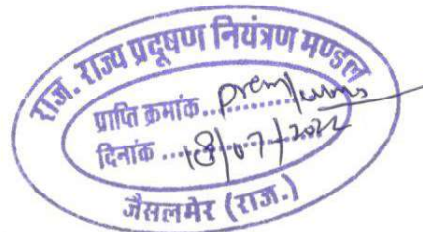 राज. राज्य प्रदूषण नियंत्रण मण्डल
प्राप्ति क्रमांक..
दिनांक ...18/07/2022
जैसलमेर (राज.)